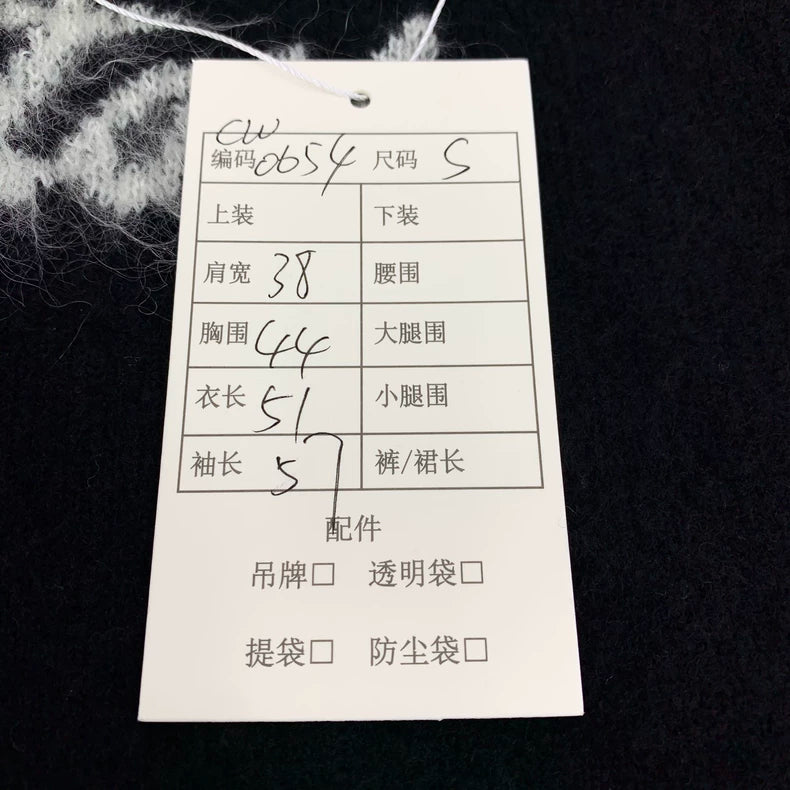 CW
编码 0654 尺码 S
上装 下装
肩宽 38 腰围
胸围 44 大腿围
衣长 51 小腿围
袖长 57 裤/裙长
配件
吊牌□ 透明袋□
提袋□ 防尘袋□